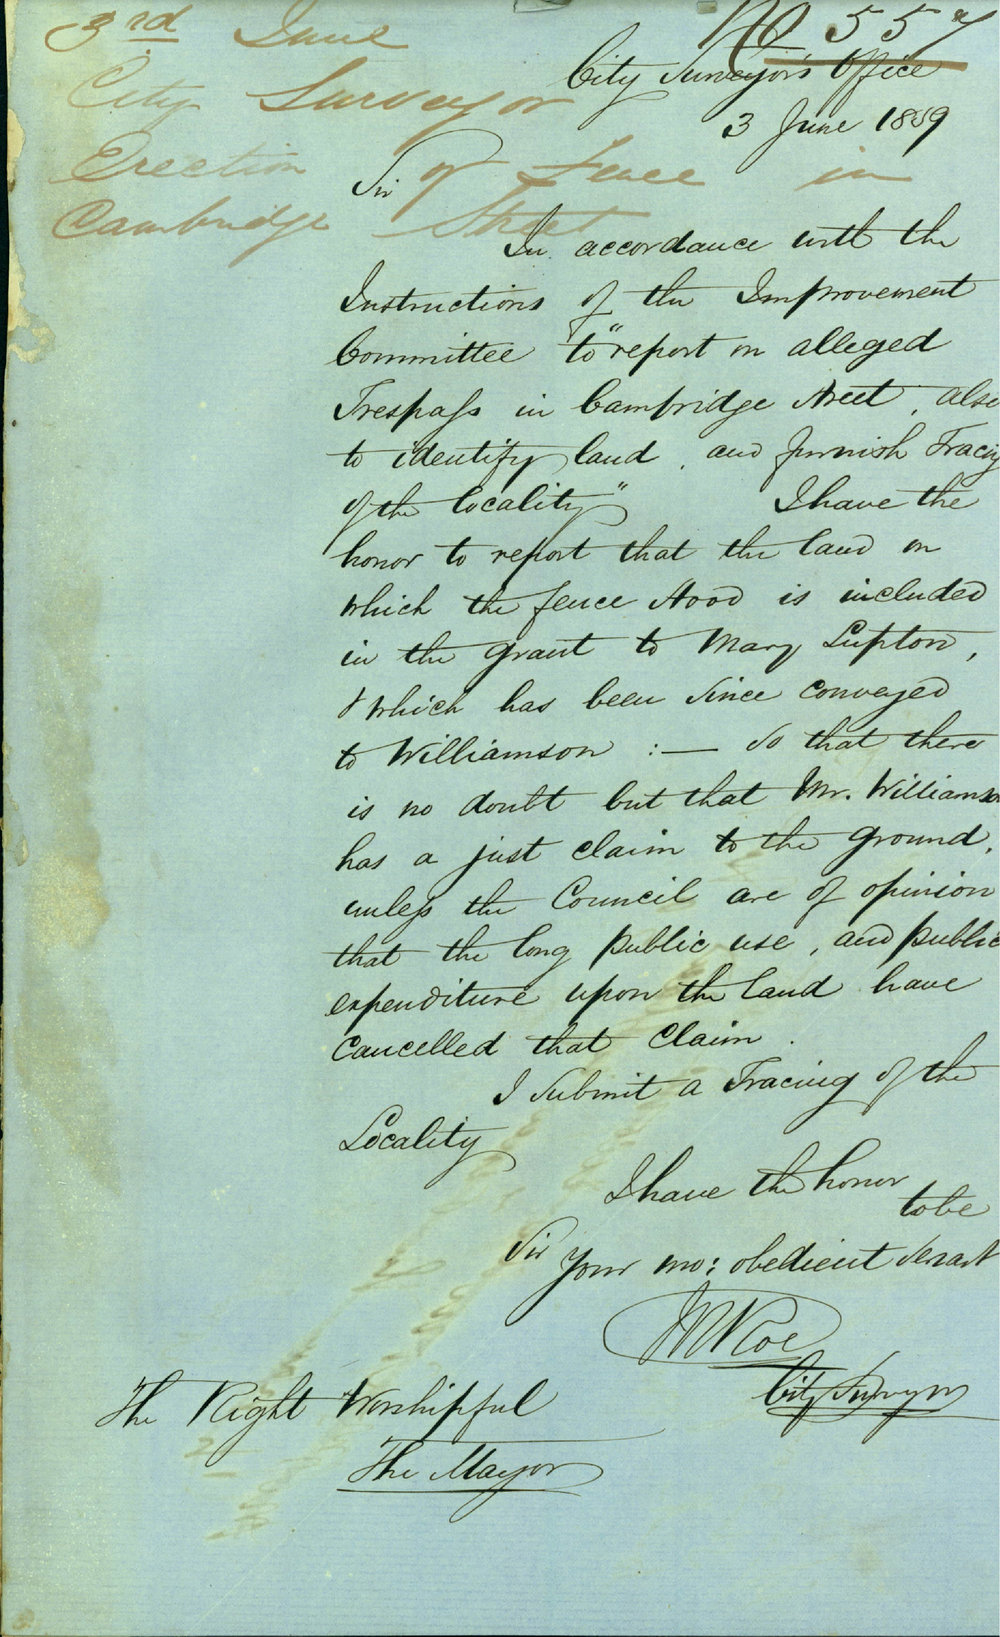 No 557
3rd June
City Surveyor
Erection of Fence in
Cambridge Street
City Surveyor's Office
3 June 1859
Sir
In accordance with the
Instructions of the Improvement
Committee to "report on alleged
Trespass in Cambridge Street, also
to identify land, and furnish Tracing
of the locality" I have the
honor to report that the land on
which the fence stood is included
in the grant to Mary Lupton,
& which has been since conveyed
to Williamson :— so that there
is no doubt but that Mr. Williamson
has a just claim to the ground,
unless the Council are of opinion
that the long public use, and public
expenditure upon the land have
cancelled that claim.
I submit a Tracing of the
Locality
I have the honor
to be
Sir
Your mo: obedient Servant
City Surveyor
The Right Worshipful
The Mayor